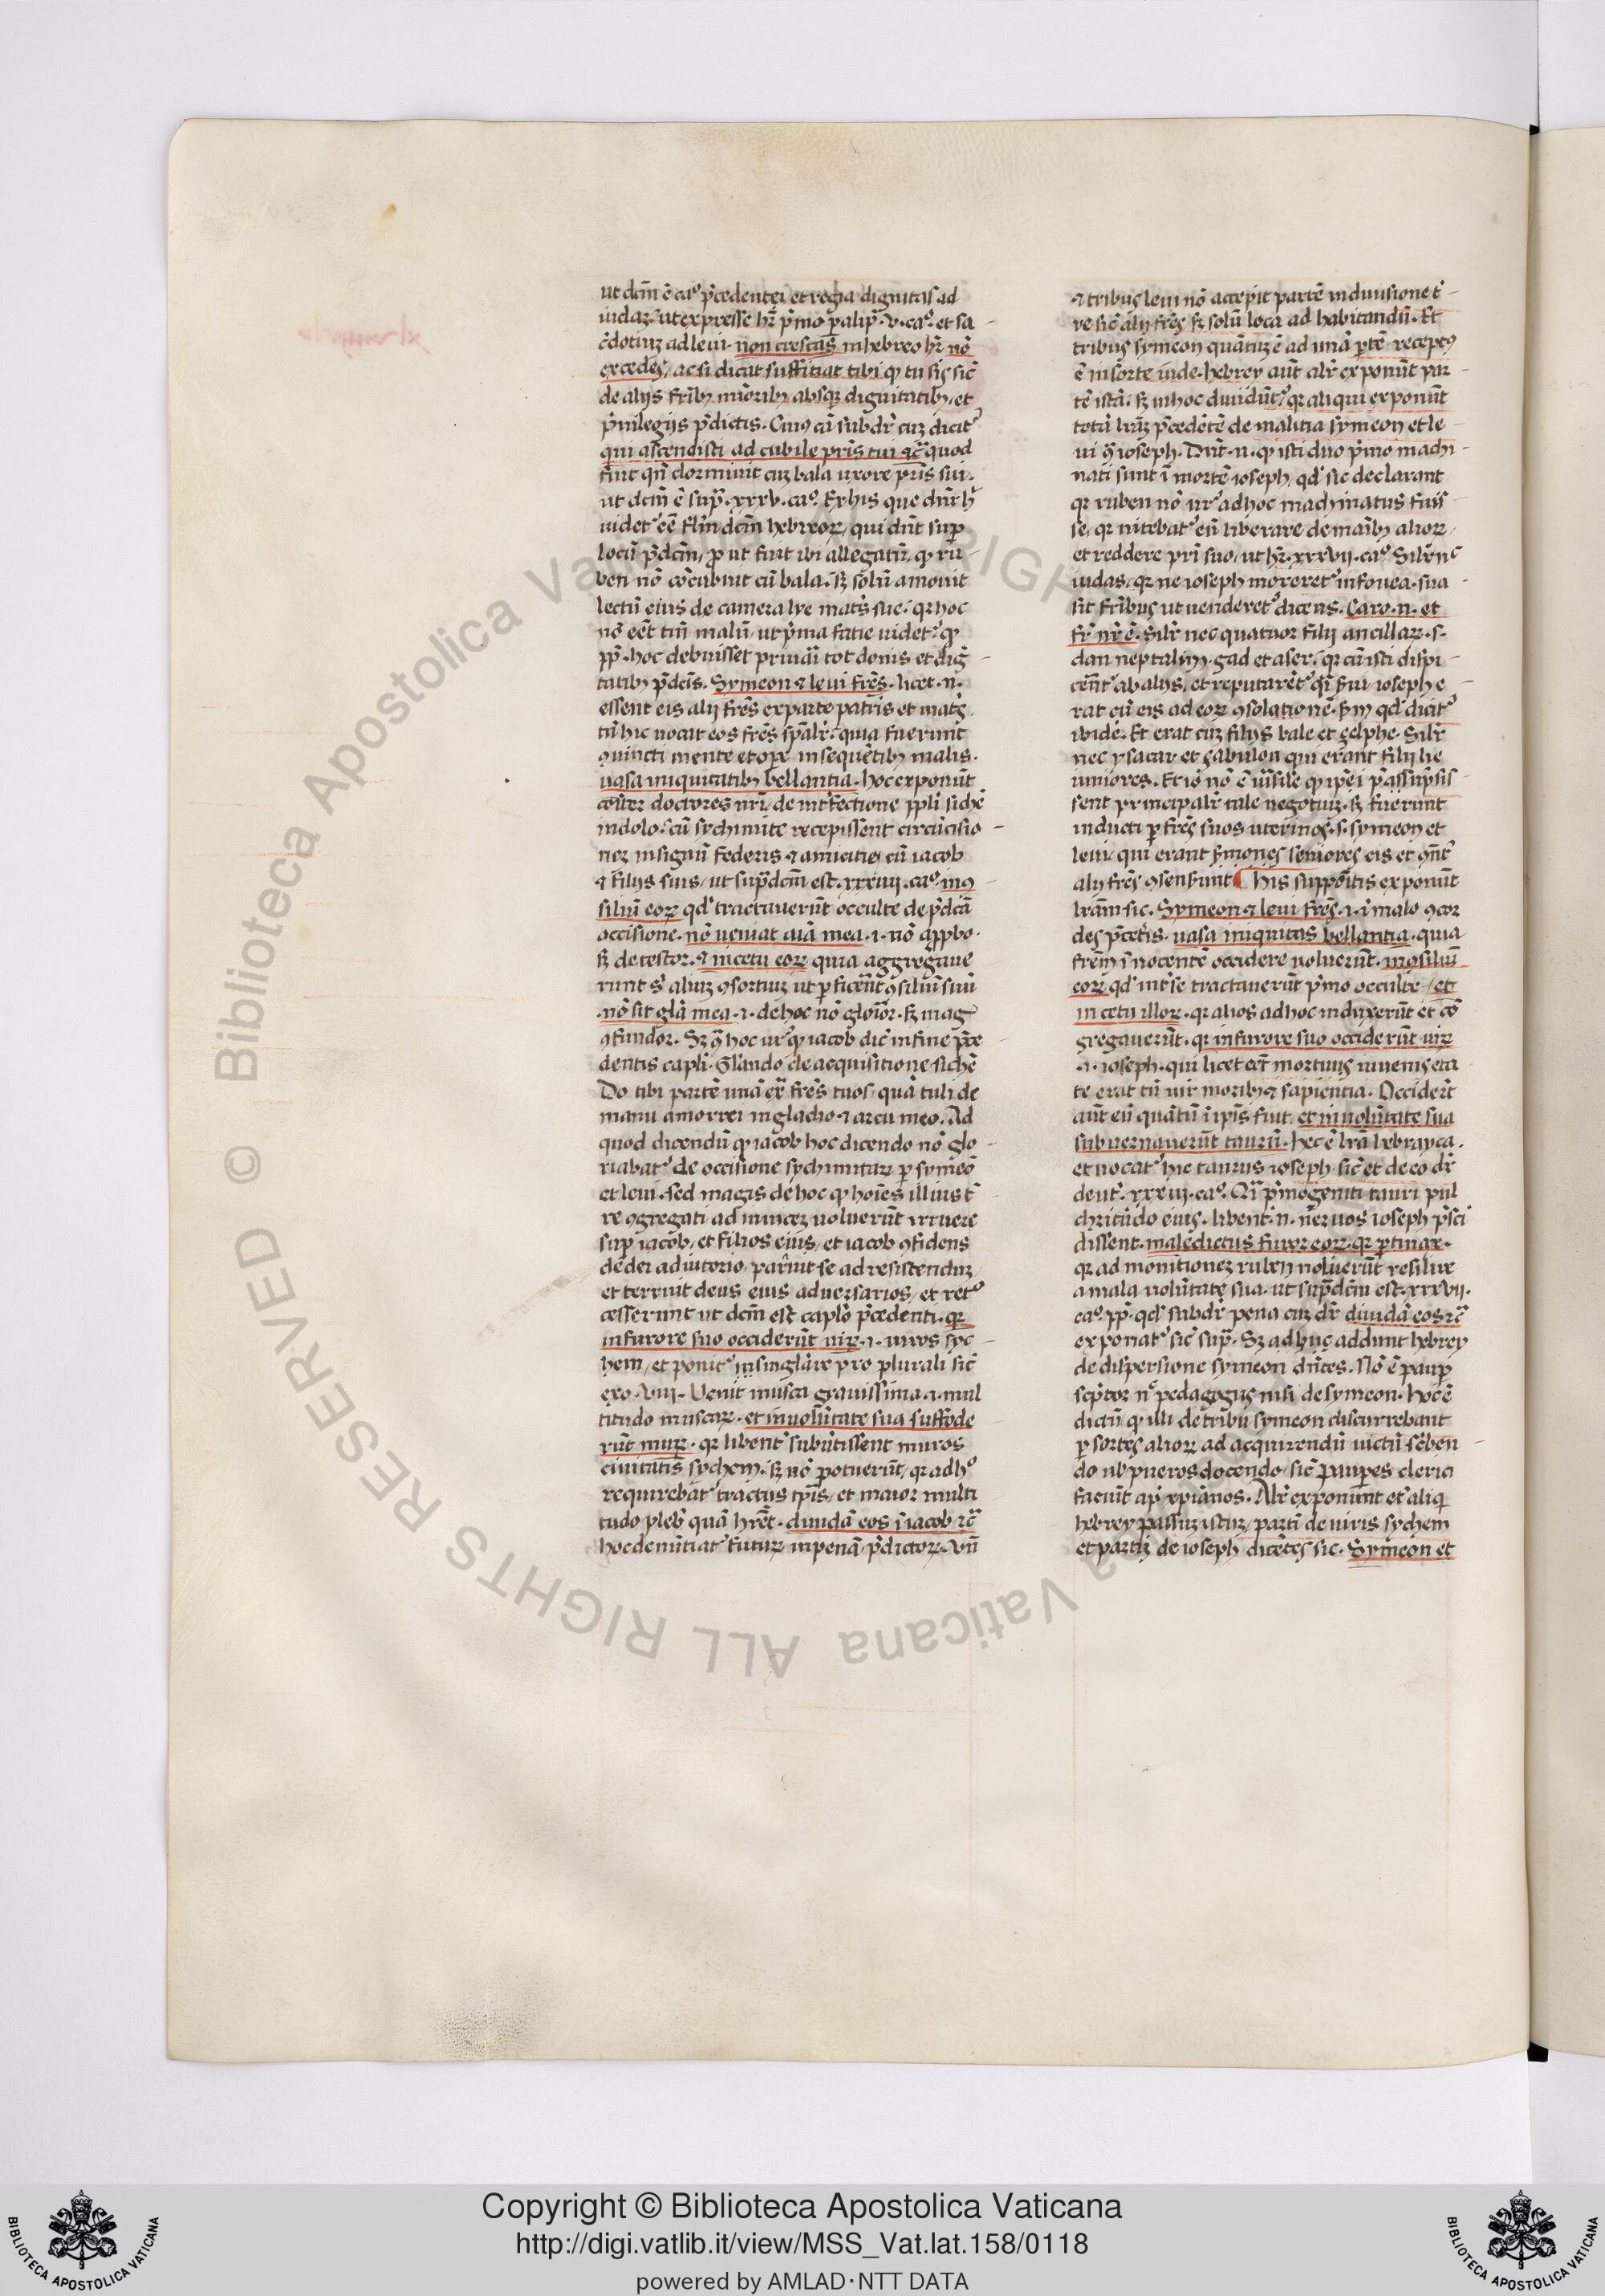 ut dcm̄ ē caº p̄cedentei et regia dignitas ad
iudaꝫ. ut expresse hr̄ p̄mo ꝑalip̄. v. caº. et sa-
c̄dotiuꝫ ad leui. non crescas̄ in hebreo hr̄ nō
excedes, ac si dicat suffitiat tibi ꝙ tu sis sic̄
de alijs fr̄ibꝫ minoribꝫ absqꝫ dignitatibꝫ, et
p̄uilegijs p̄dictis. Cuiꝰ cā subdr̄ cuꝫ dicit᷑
qui ascendisti ad cubile pr̄is tui ⁊c̄ quod
fuit qn̄ dormiuit cuꝫ bala uxore pr̄is sui.
ut dcm̄ ē sup̄. xxxv. caº. Ex his que dn̄r h̄
uidet᷑ eē fl̄m dcm̄ hebreoꝝ, qui dn̄t sup̄
locū p̄dcm̄, ꝓ ut fuit ibi allegatū, ꝙ ru-
ben nō cōcubuit cū bala. sꝫ solū amouit
lectū eius de camera lye matr̄s sue. qꝛ hoc
nō eēt tm̄ malū, ut p̄ma fatie uidet᷑. ꝙ
ꝓp̄. hoc debuisset priuāī tot donis et dig̅-
tatibꝫ p̄dcīs. Symeon ⁊ leui fr̄es. licet .n.
essent eis alij fr̄es ex parte patris et matr̄.
tn̄ hic uocat eos fr̄es sp̄alr̄. quia fuerunt
ꝯiuncti mente et oꝑe in sequētibꝫ malis.
uasa iniquitatibꝫ bellantia. hoc exponūt
cōīter doctores nr̄i, de int̄fectione ppl̄i siche᷑
in dolo. cū sychimite recepissent circūcisio-
neꝫ in signū federis ⁊ amicitie, cū iacob
⁊ filijs suis, ut sup̄dcm̄ est. xxxiiij. caº. in ꝯ
siliū eoꝝ qd᷑ tractauerūt occulte de p̄dcā
occisione. nō ueniat aīa mea .i. nō app̄bo.
sꝫ detestor. ⁊ in cetu eoꝝ quia aggregaue
runt s᷑ aliuꝫ ꝯsortiuꝫ ut ꝑficer̄et ꝯsiliū suū
. nō sit gl̄a mea .i. de hoc nō gloīor. sꝫ mag᷑
ꝯfundor. Sꝫ ꝯ̄ hoc ur᷑ ꝙ iacob dic̄ in fine p̄ce
dentis capl̄i. gl̄iando de acquisitione siche᷑
Do tibi partē unā ex̄ fr̄es tuos, quā tuli de
manu amorrei in gladio ⁊ arcu meo. Ad
quod dicendū ꝙ iacob hoc dicendo nō glo-
riabat᷑ de occisione sychimitaꝝ ꝑ symeō
et leui. sed magis de hoc ꝙ hoīes illius t᷑
re ꝯgregati ad inuiceꝫ uoluerūt irruere
sup̄ iacob, et filios eius, et iacob ꝯfidens
de dei adiutorio, parauit se ad resistenduꝫ,
et terruit deus eius aduersarios, et ret᷑º
cesserunt ut dcm̄ est caplo p̄cedenti. qꝛ
in furore suo occiderūt uiꝝ .i. uiros syc-
hem, et ponit᷑ in singl̄are pro plurali sic̄
exo. viij. Uenit musca grauissima .i. mul
titudo muscaꝝ. et in uolūtate sua suffode
rūt muꝝ. qꝛ libent᷑ subu̅tissent muros
ciuitatis sychem. sꝫ nō potuerūt, qꝛ ad hº
requirebat᷑ tractus tp̄is, et maior multi
tudo pleb᷑ quā hr̄et. diuidā eos ī iacob ⁊c̄
hoc denūtiat᷑ futuꝝ in penā p̄dictoꝝ. Un̄
⁊ tribus leui nō accepit partē in diuisione t᷑-
re sic̄ alij fr̄es sꝫ solū loca ad habitandū. Et
tribus symeon quātuꝫ ē ad unā ꝑtē receptꝰ
ē in sorte iude. hebrey aūt alr̄ exponūt par-
tē istā. sꝫ in hoc diuidūt᷑. qꝛ aliqui exponūt
totā lr̄aꝫ p̄cedētē de malitia symeon et le-
ui ꝯ̄ ioseph. Dn̄t .n. ꝙ isti duo p̄mo machi-
nati sunt ī mortē ioseph, qd᷑ sic declarant
qꝛ ruben nō ur᷑ ad hoc machinatus fuis-
se, qꝛ nitebat᷑ eū liberare de manibꝫ alioꝝ,
et reddere pr̄i suo, ut hr̄. xxxvii. caº. Silr̄ nc̄
iudas, qꝛ ne ioseph moreret᷑ in fouea. sua-
sit fr̄ibus ut uenderet᷑ dicens. Caro .n. et
fr̄ nr̄ ē. Silr̄ nec quatuor filij ancillaꝝ .s.
dan neptalim. gad et aser. qꝛ cū isti dispi-
cer̄nt᷑ ab alijs, et reputarēt᷑ q̄i fui ioseph e
rat cū eis ad eoꝝ ꝯsolationē. s̄m qd᷑ dicit᷑
ibidē. Et erat cuꝫ filijs bale et çelphe. Silr̄
nec ysacar et çabulon qui erant filij lie
iuniores. Et iō nō ē uīsile ꝙ ip̄ei p̄assūpsis-
sent principalr̄ tale negotiuꝫ. sꝫ fuerunt
inducti ꝑ fr̄es suos uterinos .s. symeon et
leui. qui erant f̄mones seniores eis et ꝯn̄t᷑
alij fr̄es ꝯsenserunt ¶ his suppōitis exponūt
lr̄am sic. Symeon ⁊ leui fr̄es .i. ī malo ꝯcor
des p̄ceteris. uasa iniquitas bellantia. quia
fr̄em īnocentē occidere uoluerūt. in ꝯsiliū
eoꝝ qd᷑ int̄ se tractauerūt p̄mo occulte, et
in cetu illoꝝ. qꝛ alios ad hoc induxerūt et cō
gregauerūt. qꝛ in furore suo occiderūt uiꝝ
.i. ioseph. qui licet eēt mortuus iuuenis eta
te erat tn̄ uir moribꝫ ⁊ sapientia. Occiderūt
aūt eū quātū ī ip̄is fuit. et in uolūtate sua
subneruauerūt taurū. hec ē lr̄a hebrayca.
et uocat᷑ hic taurus ioseph. sic̄ et de eo dr̄
deut᷑. xxxiij. caº. Q̄i p̄mogeniti tauri pul
chritudo eius. libent᷑ .n. neruos ioseph p̄sci
dissent. maledictus furor eoꝝ. qꝛ ꝑtinax.
qꝛ ad monitioneꝫ ruben noluerūt resilire
a mala uolūtate sua. ut sup̄dcm̄ est. xxxvij.
caº. ꝓp̄. qd᷑ subdr̄ pena cuꝫ dr̄ diuidā eos ⁊c̄
exponat᷑ sic̄ sup̄. Sꝫ ad huc addunt hebrey
de dispersione symeon dn̄tes. Nō ē paup̄
sc̄ptor n̄c pedagogus nisi de symeon. hoc ē
dictū ꝙ illi de tribu symeon discurrebant
ꝑ sortes alioꝝ ad acquirendū uictū sc̄ben-
do ul᷑ pueros docendo, sic̄ pauꝑes clerici
faciūt ap̄ xp̄ianos. Alr̄ exponunt et᷑ aliqi
hebrey passuꝫ istuꝫ, partī de uiris sychem
et partiꝫ de ioseph dicētes sic. Symeon et
Copyright © Biblioteca Apostolica Vaticana
http://digi.vatlib.it/view/MSS_Vat.lat.158/0118
powered by AMLAD·NTT DATA